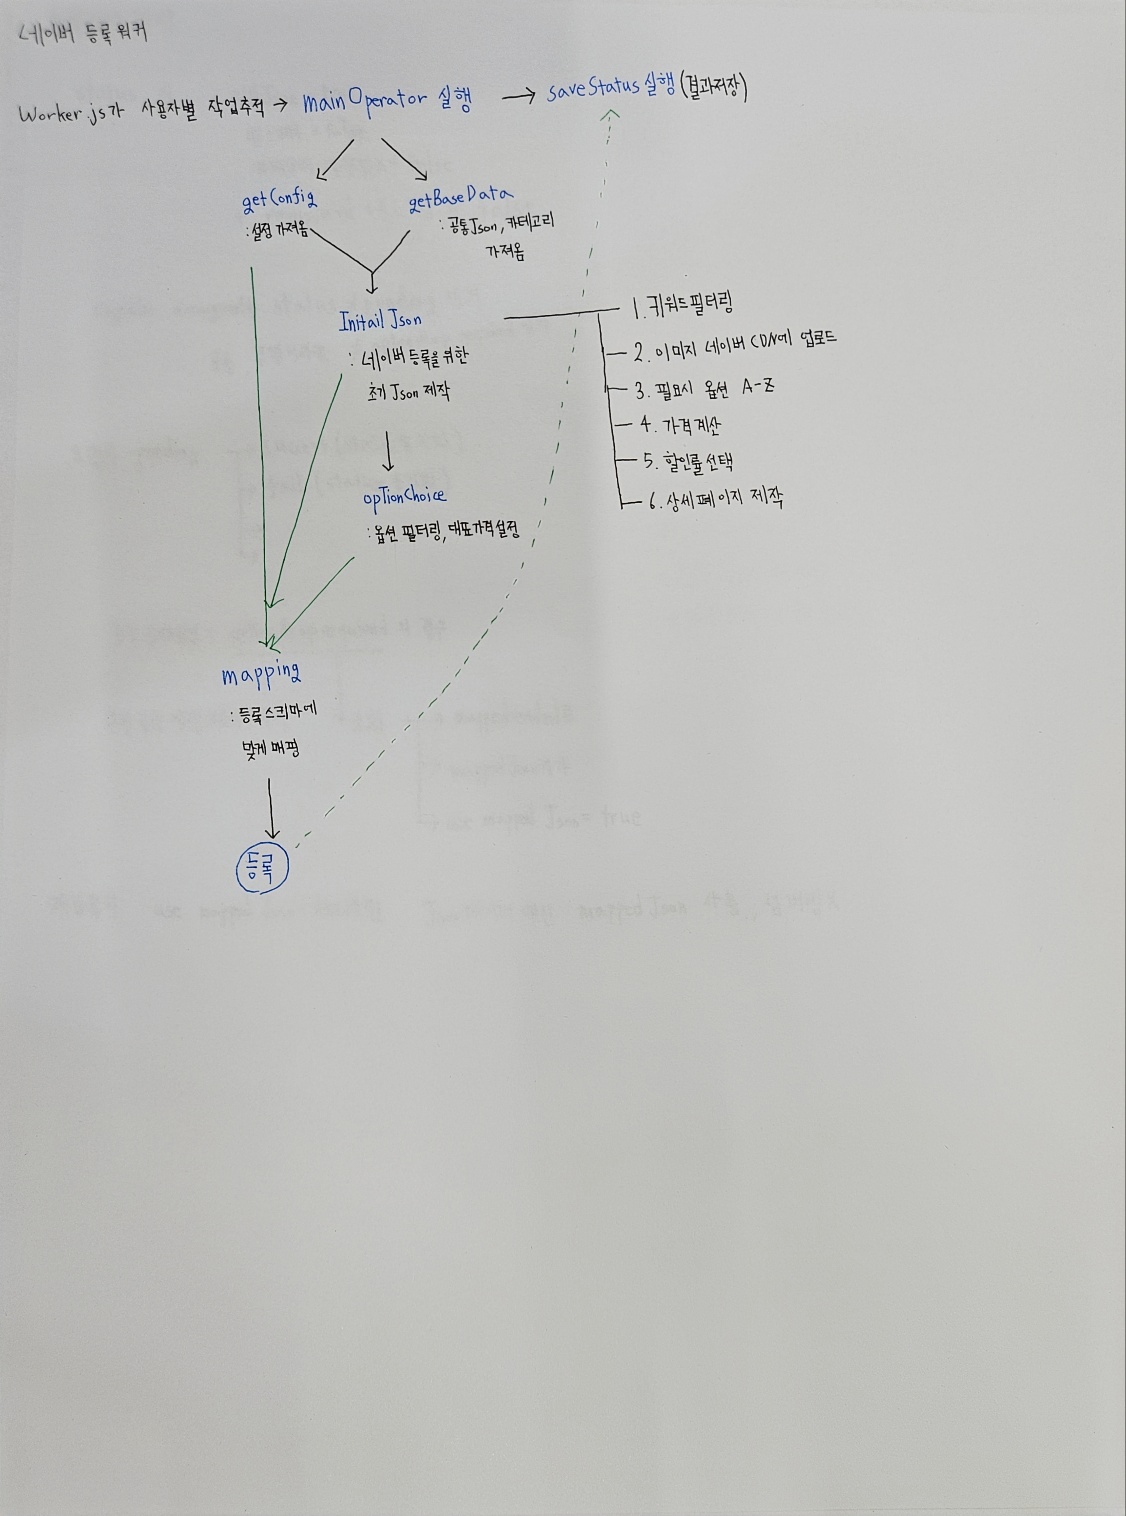 네이버 등록 워커
Worker.js가 사용자별 작업추적 → mainOperator 실행 → saveStatus 실행 (결과저장)
getConfig
: 설정 가져옴
getBaseData
: 공통Json, 카테고리
가져옴
Initail Json
: 네이버 등록을 위한
초기 Json 제작
1. 키워드 필터링
2. 이미지 네이버 CDN에 업로드
3. 필요시 옵션 A-Z
4. 가격계산
5. 할인률 선택
6. 상세페이지 제작
opTionChoice
: 옵션 필터링, 대표가격설정
mapping
: 등록스키마에
맞게 매핑
등록